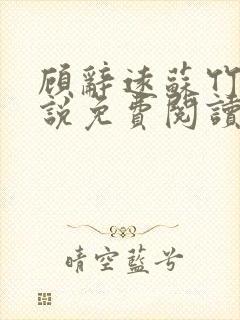 顾辭遠蘇竹
說免費閱讀
晴空藍兮